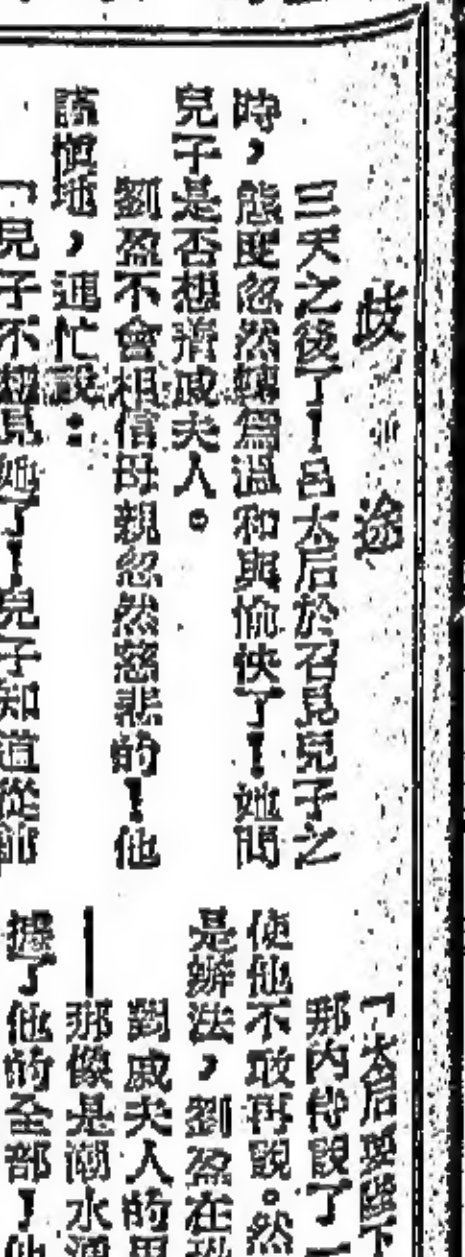 歧途
三天之後了！呂太后於召見兒子之
時，態度忽然轉為溫和與愉快了！她問
兒子是否想着戚夫人。
劉盈不會相信母親忽然慈悲的！他
謹慎地，連忙說：
「兒子不想見她了！兒子知道從前
「太后要陛下
那內侍說了
使他不敢再說。然
是辦法，劉盈在
對戚夫人的
——那像是潮水
據了他的全部！他